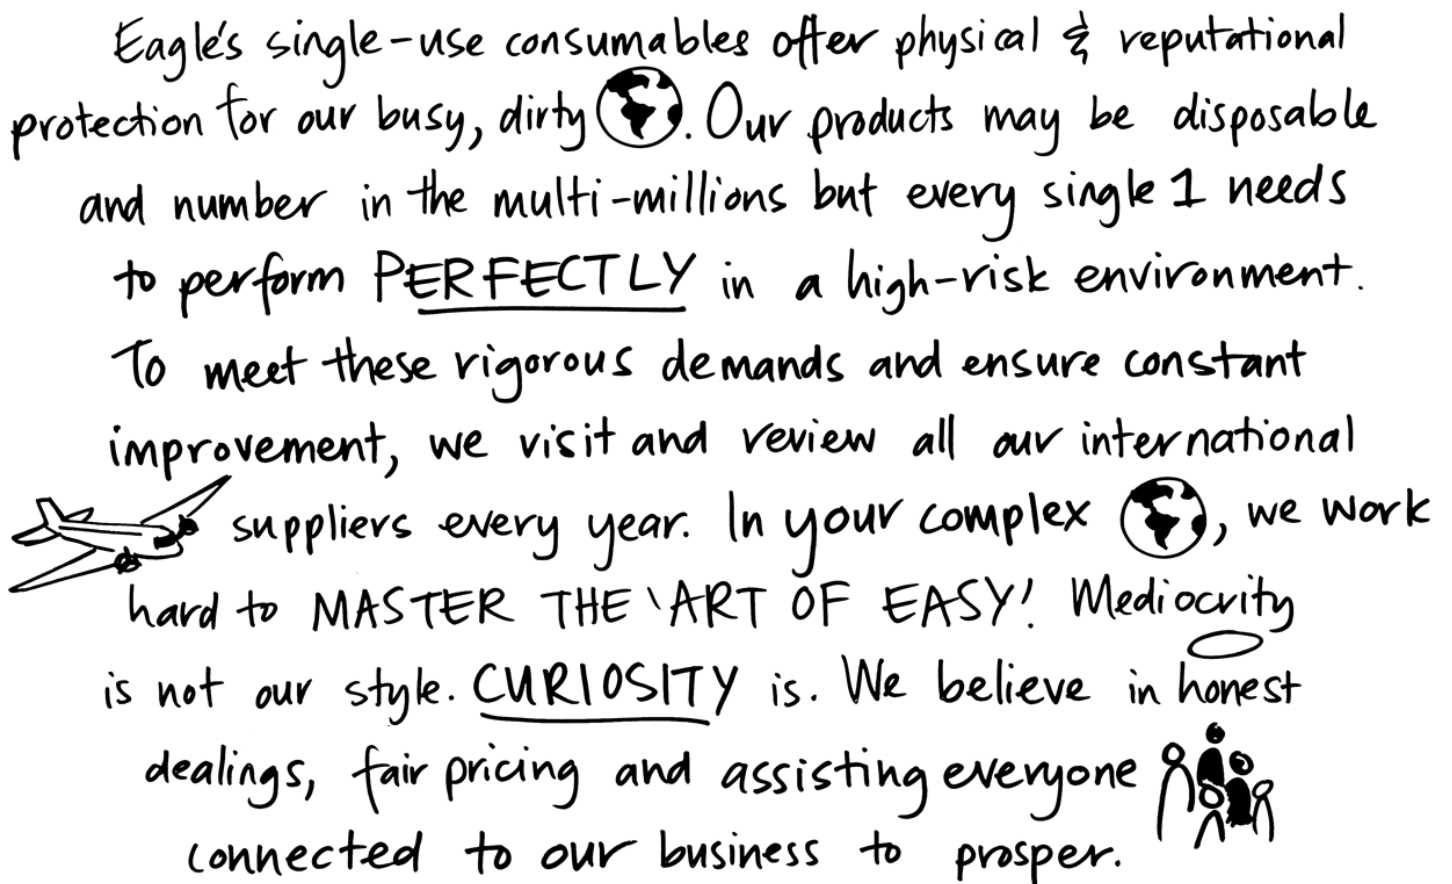 Eagle's single-use consumables offer physical & reputational
protection for our busy, dirty. Our products may be disposable
and number in the multi-millions but every single 1 needs
to perform PERFECTLY in a high-risk environment.
To meet these rigorous demands and ensure constant
improvement, we visit and review all our international
suppliers every year. In your complex, we work
hard to MASTER THE 'ART OF EASY! Mediocrity
is not our style. CURIOSITY is. We believe in honest
dealings, fair pricing and assisting everyone
connected to our business to prosper.